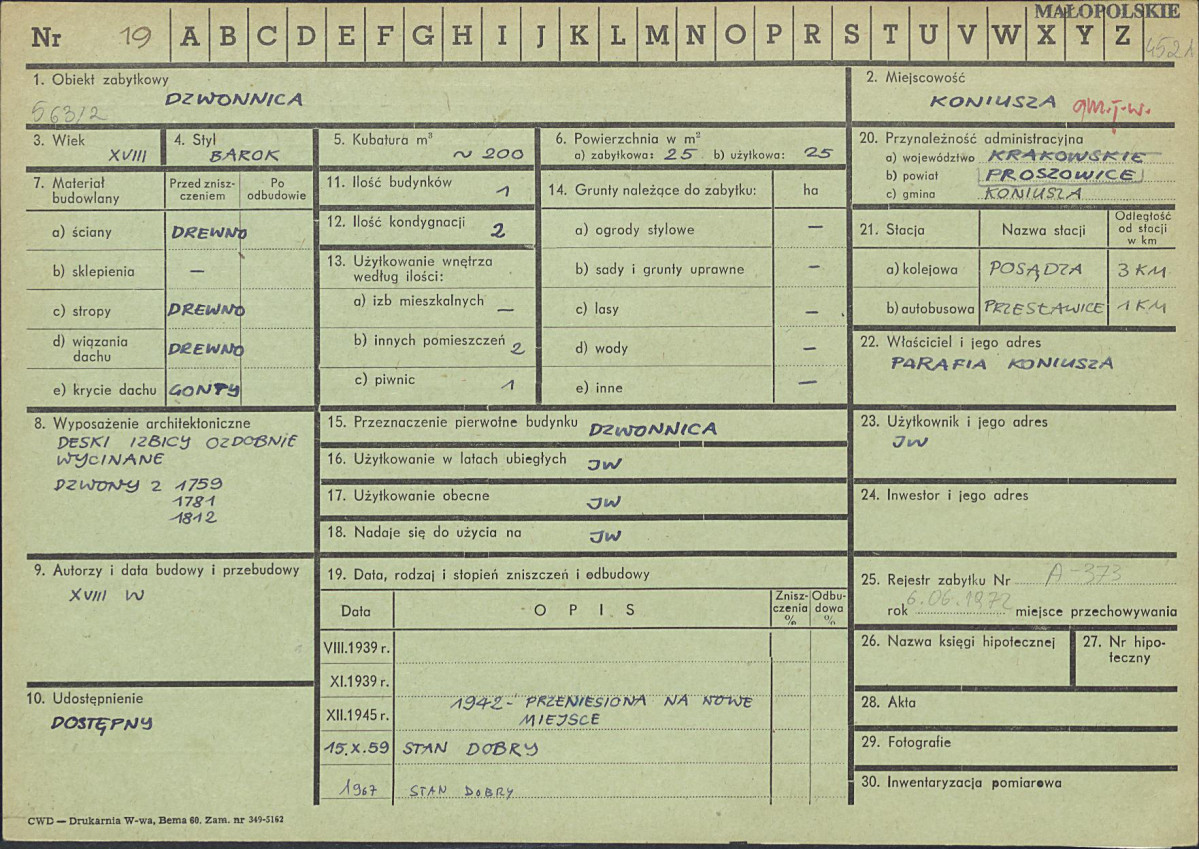 MAŁOPOLSKIE
Nr 19 A B C D E F G H I J K L M N O P R S T U V W X Y Z
4521
1. Obiekt zabytkowy
DZWONNICA
563/2
2. Miejscowość
KONIUSZA gm.j.w.
3. Wiek
XVIII
4. Styl
BAROK
5. Kubatura m³
~ 200
6. Powierzchnia w m²
a) zabytkowa: 25 b) użytkowa: 25
20. Przynależność administracyjna
a) województwo KRAKOWSKIE
b) powiat PROSZOWICE
c) gmina KONIUSZA
7. Materiał budowlany
Przed zniszczeniem
Po odbudowie
a) ściany DREWNO
b) sklepienia —
c) stropy DREWNO
d) wiązania dachu DREWNO
e) krycie dachu GONTY
11. Ilość budynków 1
12. Ilość kondygnacji 2
13. Użytkowanie wnętrza
według ilości:
a) izb mieszkalnych —
b) innych pomieszczeń 2
c) piwnic 1
14. Grunty należące do zabytku: ha
a) ogrody stylowe —
b) sady i grunty uprawne —
c) lasy —
d) wody —
e) inne —
21. Stacja
Nazwa stacji
Odległość od stacji w km
a) kolejowa POSĄDZA 3 KM
b) autobusowa PRZESŁAWICE 1 KM
22. Właściciel i jego adres
PARAFIA KONIUSZA
8. Wyposażenie architektoniczne
DESKI IZBICY OZDOBNIE
WYCINANE
DZWONY Z 1759
1781
1812
15. Przeznaczenie pierwotne budynku DZWONNICA
16. Użytkowanie w latach ubiegłych JW
17. Użytkowanie obecne JW
18. Nadaje się do użycia na JW
23. Użytkownik i jego adres
JW
24. Inwestor i jego adres
9. Autorzy i data budowy i przebudowy
XVIII W
10. Udostępnienie
DOSTĘPNY
19. Data, rodzaj i stopień zniszczeń i odbudowy
Data
OPIS
Zniszczenia %
Odbudowa %
VIII.1939 r.
XI.1939 r.
XII.1945 r. 1942 - PRZENIESIONA NA NOWE
MIEJSCE
15.X.59 STAN DOBRY
1967 STAN DOBRY
25. Rejestr zabytku Nr A-373
rok 6.06.1972 miejsce przechowywania
26. Nazwa księgi hipotecznej
27. Nr hipoteczny
28. Akta
29. Fotografie
30. Inwentaryzacja pomiarowa
CWD — Drukarnia W-wa, Bema 60. Zam. nr 349-5162